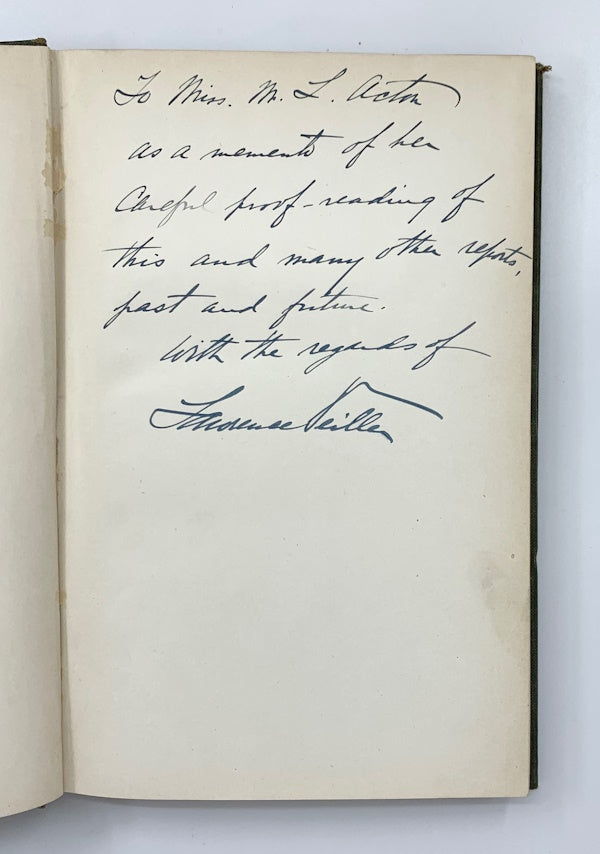 To Miss. M. L. Acton
as a memento of her
Careful proof-reading of
this and many other reports,
past and future.
With the regards of
Lawrence Veiller